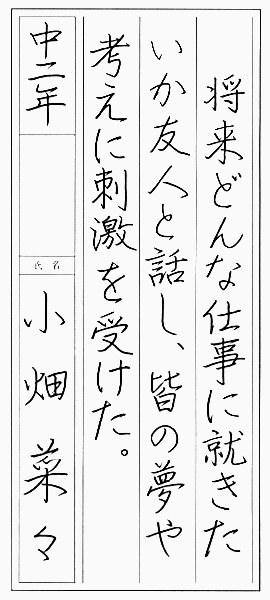 将来どんな仕事に就きた
いか友人と話し、皆の夢や
考えに刺激を受けた。
中二年
氏名
小畑菜々